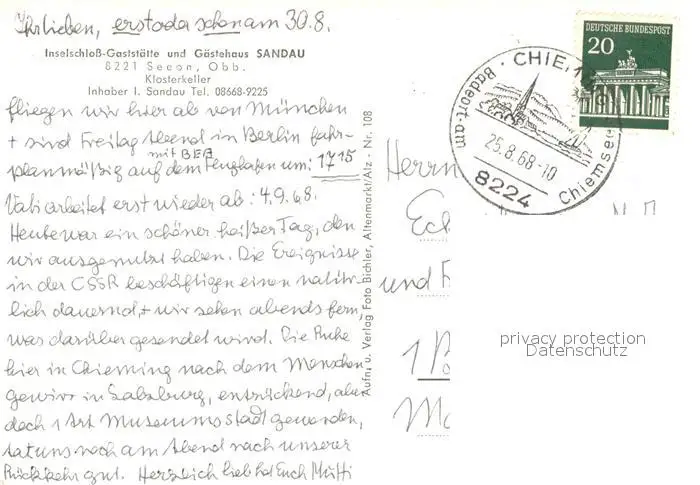 Ihr lieben, erst oder schon am 30.8.
Inselschloß-Gaststätte und Gästehaus SANDAU
8221 Seeon, Obb.
Klosterkeller
Inhaber I. Sandau Tel. 08668-9225
fliegen wir hier ab von München
+ sind Freitag Abend in Berlin fahr-
mit BEA
planmäßig auf dem Flughafen um: 17 15
Vati arbeitet erst wieder ab: 4.9.68.
Heute war ein schöner heißer Tag, den
wir ausgenutzt haben. Die Ereignisse
in der CSSR beschäftigen einen natür-
lich dauernd + wir sehen abends fern,
was darüber gesendet wird. Die Ruhe
hier in Chieming nach dem Menschen
gewirr in Salzburg, entzückend, aber
doch 1 Art Museumsstadt geworden,
tat uns noch am Abend nach unserer
Rückkehr gut. Herzlich lieb hat Euch Mutti
Aufn. u. Verlag Foto Bichler, Altenmarkt/Alz - Nr. 108
DEUTSCHE BUNDESPOST
20
CHIEM
Badeort am
Chiemsee
25.8.68-10
8224
Herrn
Eck
und
1
privacy protection
Datenschutz